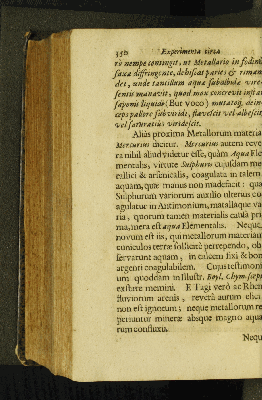 350 Experimenta circa
rò nempe contingit, ut Metallario in fodinâ
saxa diffringente, dehiscat paries & riman
det, unde tantillum aquæ subalbidæ vire-
scentis manavit, quod mox concrevit instar
saponis liquidi: Bur voco) mutatoq, dein-
ceps pallore subviridi, flavescit vel albescit
vel saturatius viridescit.
Alius proxima Metallorum materia
Mercurius dicitur. Mercurius autem reve-
ra nihil aliud videtur esse, quàm Aqua Ele-
mentalis, virtute Sulphuris cujusdam me-
tallici & arsenicalis, coagulata in talem
aquam, quæ manus non madefacit: quæ
Sulphurum variorum auxilio ulterius co-
agulatur in Antimonium, metallaque va-
ria, quorum tamen materialis causa pri-
ma, mera est aqua Elementalis. Neque
novum est iis, qui metallorum materiam
cuniculos terræ sollicitè perrependo, ob-
servarunt aquam, in calcem fixi & boni
argenti coagulabilem. Cujus testimoni-
um quoddam in Illustr. Boyl. Chym. scept.
exstare memini. E Tagi verò ac Rheni
fluviorum arenis, reverâ aurum elici
non est ignotum; neque metallorum re-
periuntur mineræ absque magno aqua-
rum confluxu.
Neque